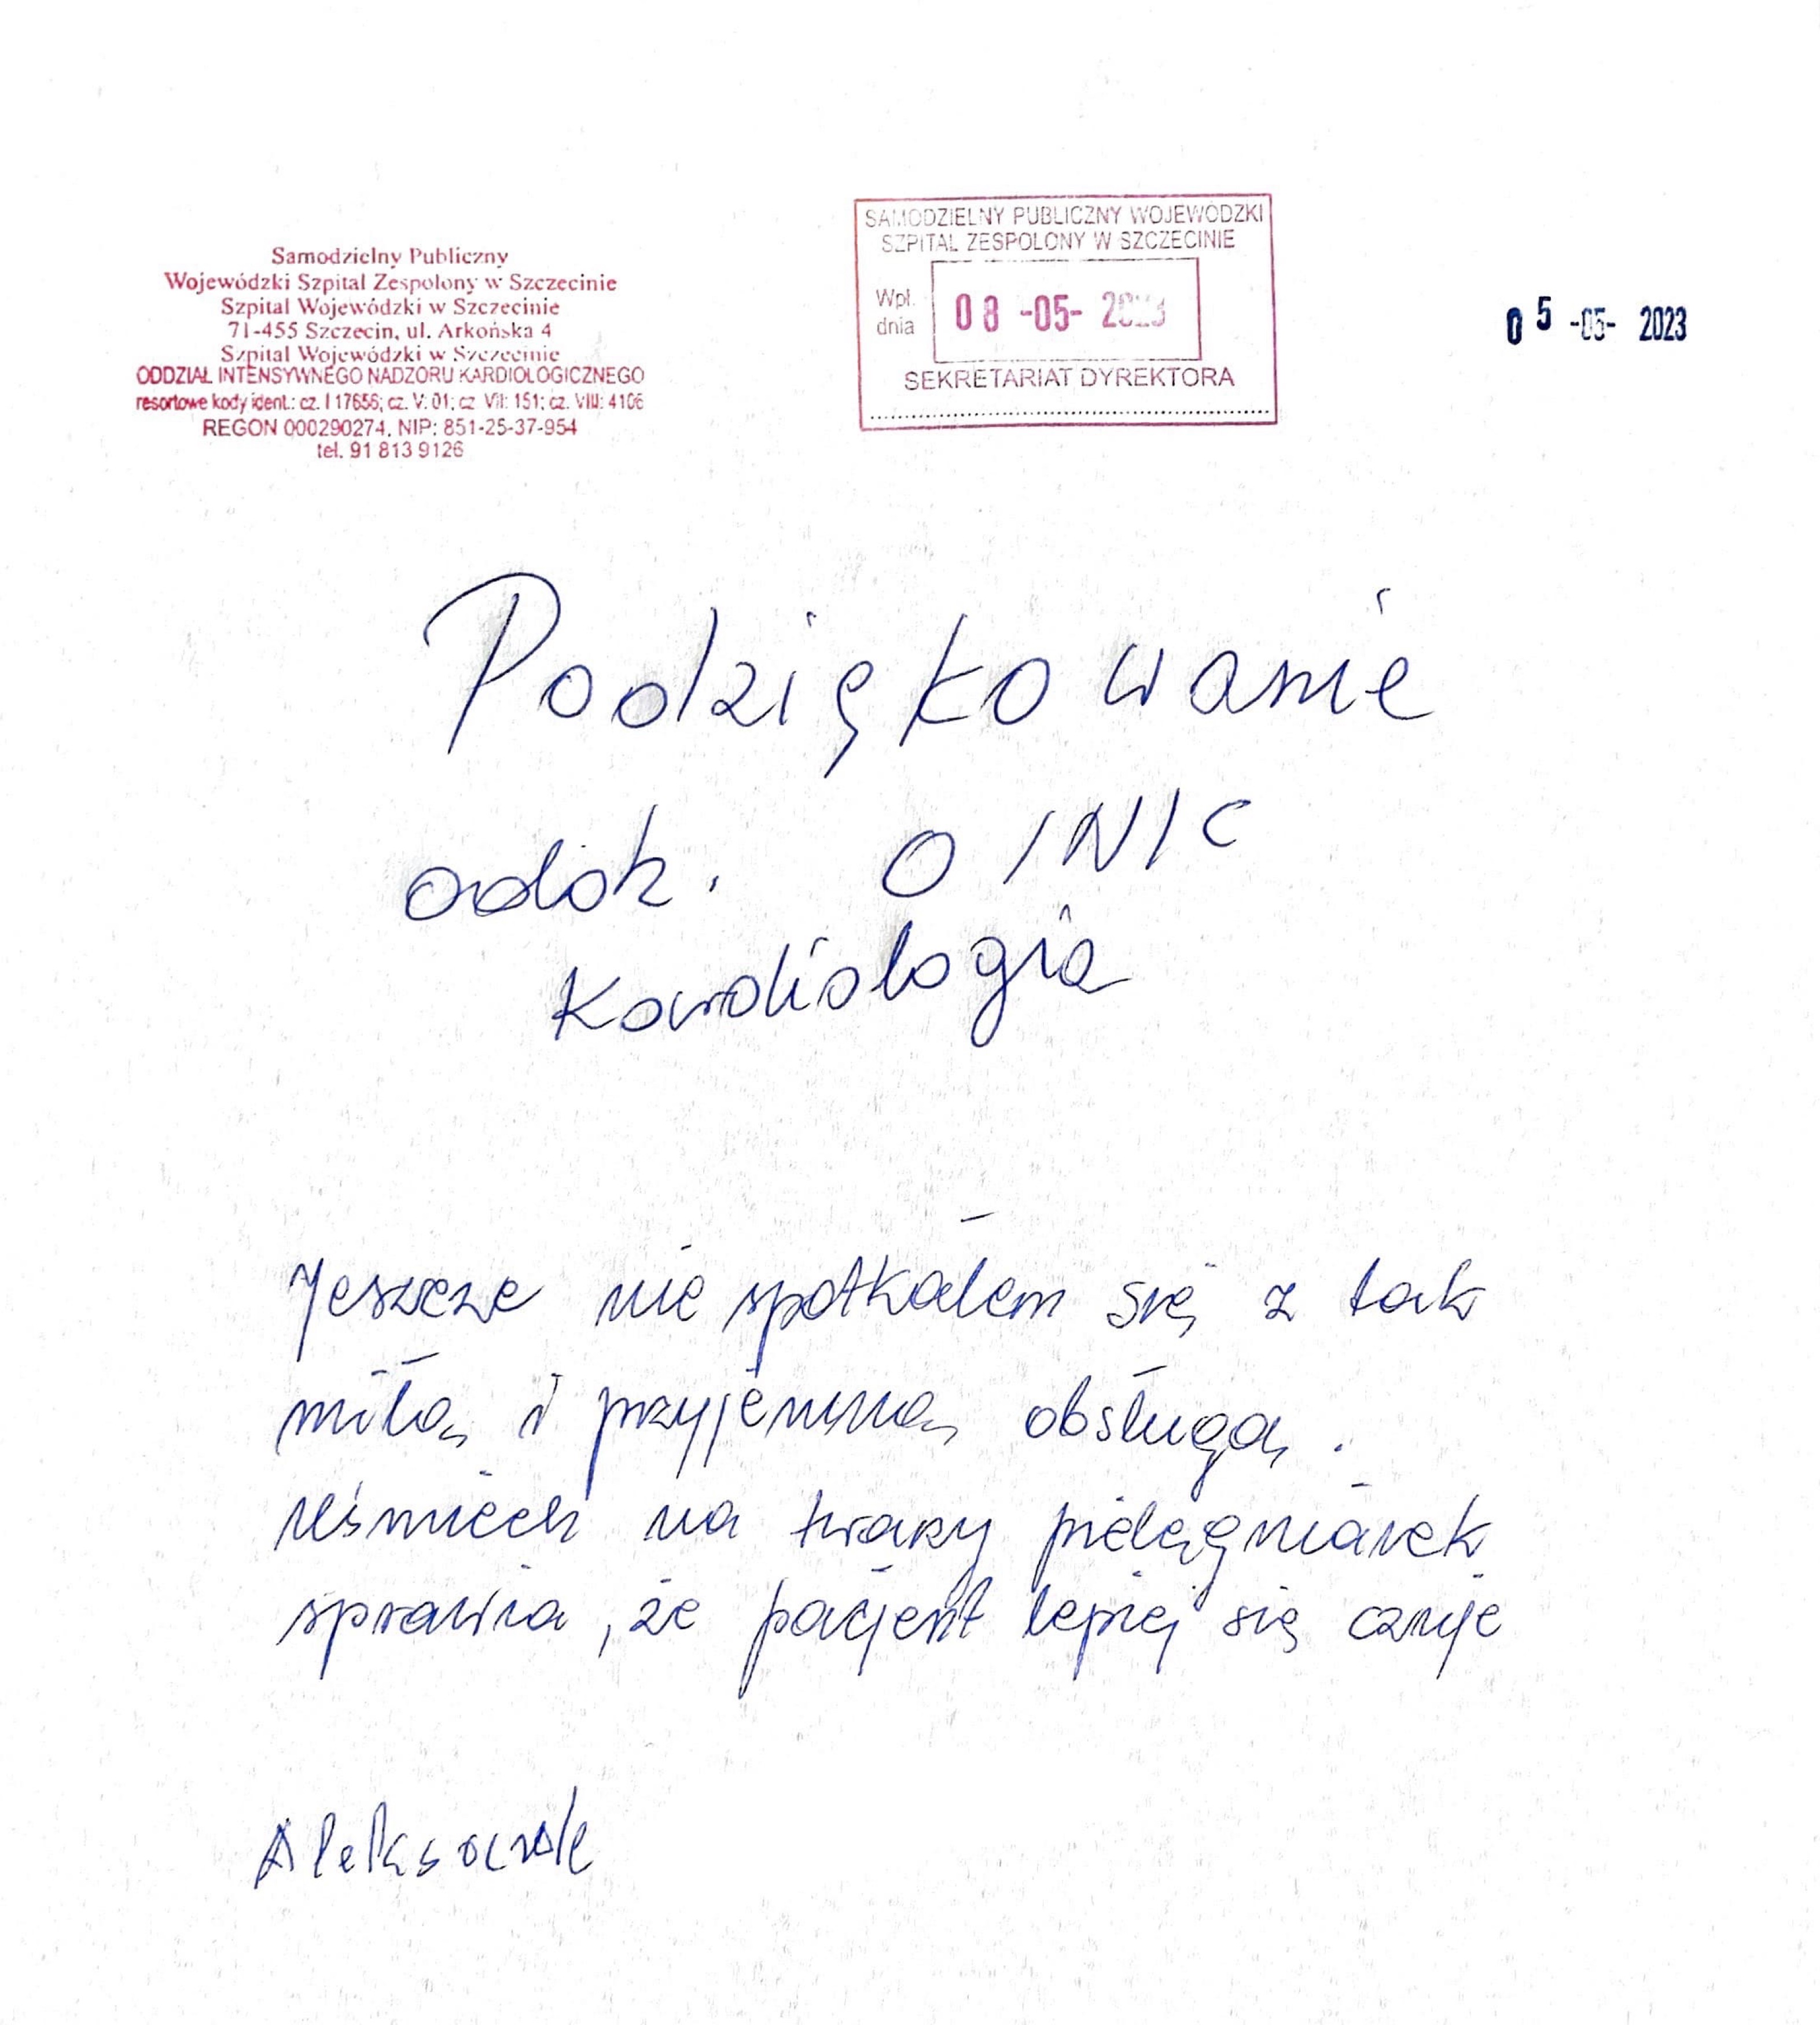 Samodzielny Publiczny
Wojewódzki Szpital Zespolony w Szczecinie
Szpital Wojewódzki w Szczecinie
71-455 Szczecin, ul. Arkońska 4
Szpital Wojewódzki w Szczecinie
ODDZIAŁ INTENSYWNEGO NADZORU KARDIOLOGICZNEGO
resortowe kody ident.: cz. I 17656; cz. V: 01; cz VII: 151; cz. VIII: 4106
REGON 000290274, NIP: 851-25-37-954
tel. 91 813 9126
SAMODZIELNY PUBLICZNY WOJEWÓDZKI
SZPITAL ZESPOLONY W SZCZECINIE
Wpł. dnia 08 -05- 2023
SEKRETARIAT DYREKTORA
05 -05- 2023
Podziękowanie
OINIC
Kardiologia
Jeszcze nie spotkałem się z tak
miłą i przyjemną obsługą.
Uśmiech na twarzy pielęgniarek
sprawia, że pacjent lepiej się czuje